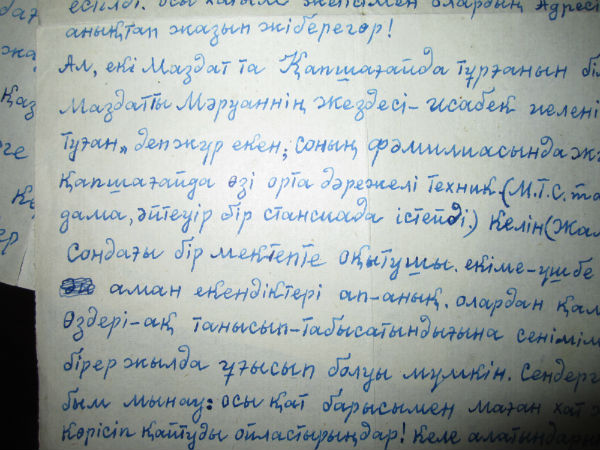 есілді. осы хатым жетісімен олардың Адресі
анықтап жазып жіберегөр!
Ал, екі Маздат та Қапшағайда тұрғанын біл
Маздатты Мәруаннің жездесі - Исабек
туған" деп жүр екен; соның фәмилиасында
Қапшағайда өзі орта дәрежелі техник. (М.Т.С.
дама, әйтеуір бір стансиада істейді.) Келін (Жам
Сондағы бір мектепте оқытушы. екіме-үшбе
аман екендіктері ап-анық. олардан қам
Өздері-ақ танысып-табысатындығына сенімім
бірер жылда ұғысып болуы мүмкін. Сендерг
бым мынау: осы қат барысымен маған хат
Көрісіп қайтуды ойластырыңдар! Келе алатындары